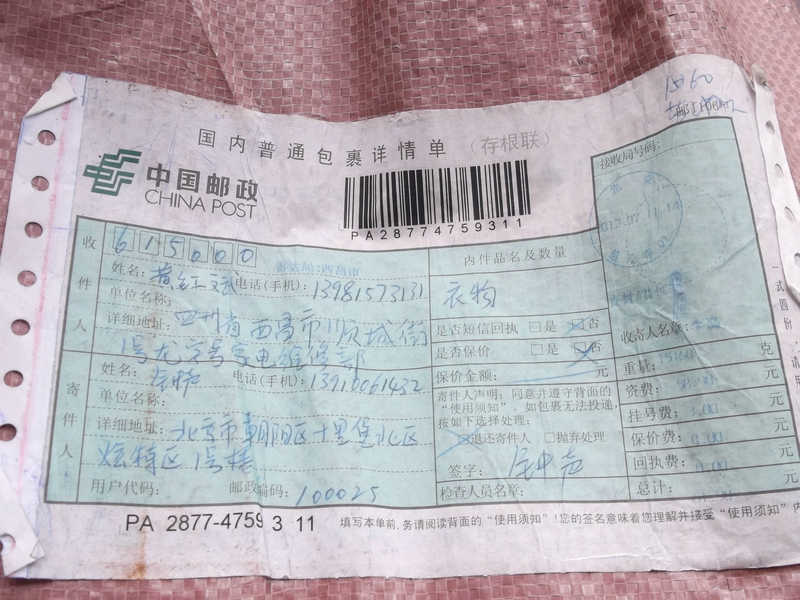 1560
国内普通包裹详情单 (存根联)
中国邮政
CHINA POST
PA28774759311
接收局号码:
收件人
615000
寄达地:西昌市
姓名: 电话(手机): 13981573131
单位名称:
详细地址: 四川省西昌市顺城街
1号龙字号家电维修部
寄件人
姓名: 电话(手机): 13910061432
单位名称:
详细地址: 北京市朝阳区十里堡北区
炫特区1号楼
用户代码: 邮政编码: 100025
内件品名及数量
衣物
是否短信回执 □是 □否
是否保价 □是 □否
保价金额: 元
寄件人声明: 同意并遵守背面的
“使用须知”, 如包裹无法投递,
按如下选择处理:
□退还寄件人 □抛弃处理
签字:
检查人员名章:
收寄人名章:
重量: 克
资费: 元
挂号费: 元
保价费: 元
回执费: 元
总计: 元
一式四份
PA 2877-4759 3 11
填写本单前,务请阅读背面的“使用须知”!您的签名意味着您理解并接受“使用须知”内